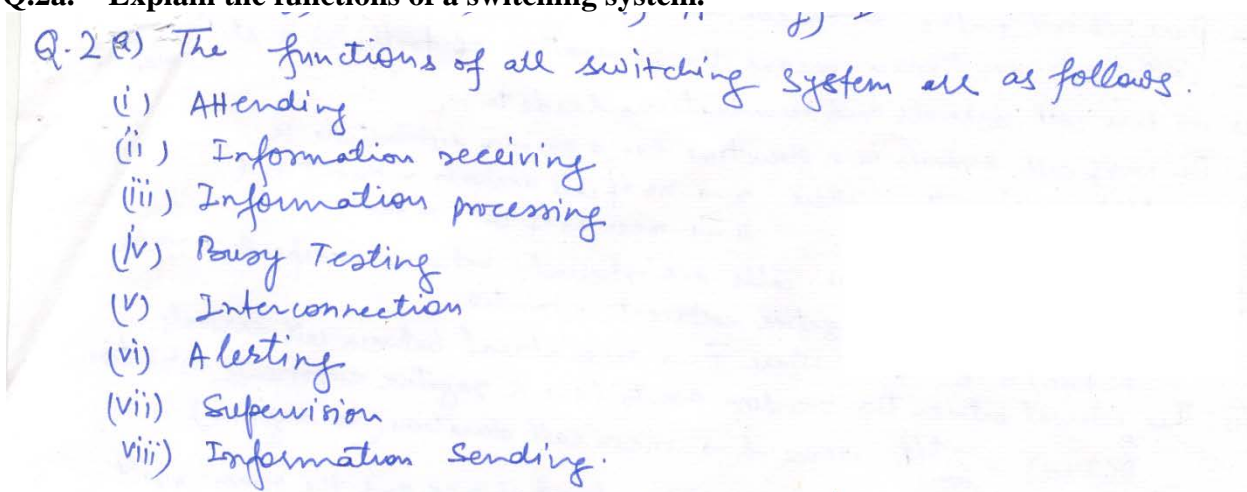 Q.2a. Explain the functions of a switching system.
Q.2(a) The functions of all switching system are as follows.
(i) Attending
(ii) Information receiving
(iii) Information processing
(iv) Busy Testing
(v) Interconnection
(vi) Alerting
(vii) Supervision
viii) Information Sending.